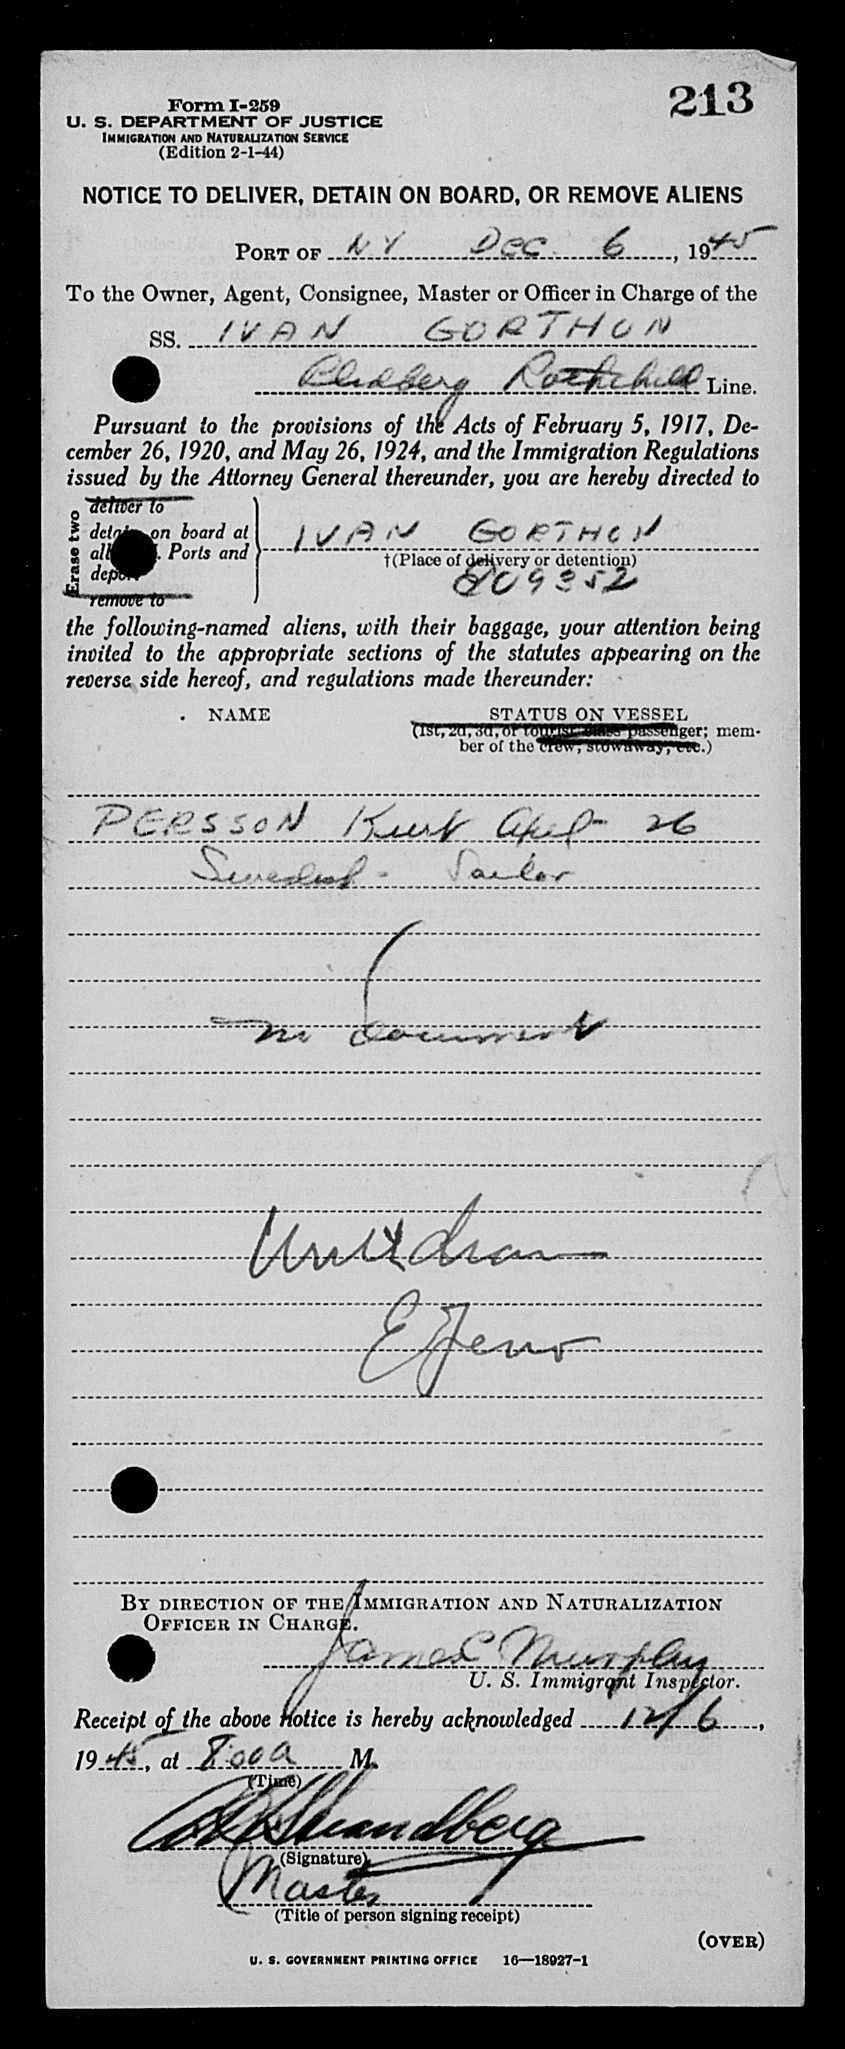 213
Form I-259
U. S. DEPARTMENT OF JUSTICE
IMMIGRATION AND NATURALIZATION SERVICE
(Edition 2-1-44)
NOTICE TO DELIVER, DETAIN ON BOARD, OR REMOVE ALIENS
PORT OF N.Y Dec 6, 1945
To the Owner, Agent, Consignee, Master or Officer in Charge of the
SS. IVAN GORTHON
Line.
Pursuant to the provisions of the Acts of February 5, 1917, De-
cember 26, 1920, and May 26, 1924, and the Immigration Regulations
issued by the Attorney General thereunder, you are hereby directed to
Erase two
deliver to
detain on board at
all Ports and
deport
remove to
IVAN GORTHON
†(Place of delivery or detention)
809352
the following-named aliens, with their baggage, your attention being
invited to the appropriate sections of the statutes appearing on the
reverse side hereof, and regulations made thereunder:
NAME STATUS ON VESSEL
(1st, 2d, 3d, or tourist class passenger; mem-
ber of the crew, stowaway, etc.)
PERSSON Kurt Axel - 26
Swedish - Sailor
no document
Withdrawn
BY DIRECTION OF THE IMMIGRATION AND NATURALIZATION
OFFICER IN CHARGE.
James Murphy
U. S. Immigrant Inspector.
Receipt of the above notice is hereby acknowledged 12/6,
1945, at 8:00 a M.
(Time)
Strandberg
(Signature)
Master
(Title of person signing receipt)
(OVER)
U. S. GOVERNMENT PRINTING OFFICE 16—18927-1